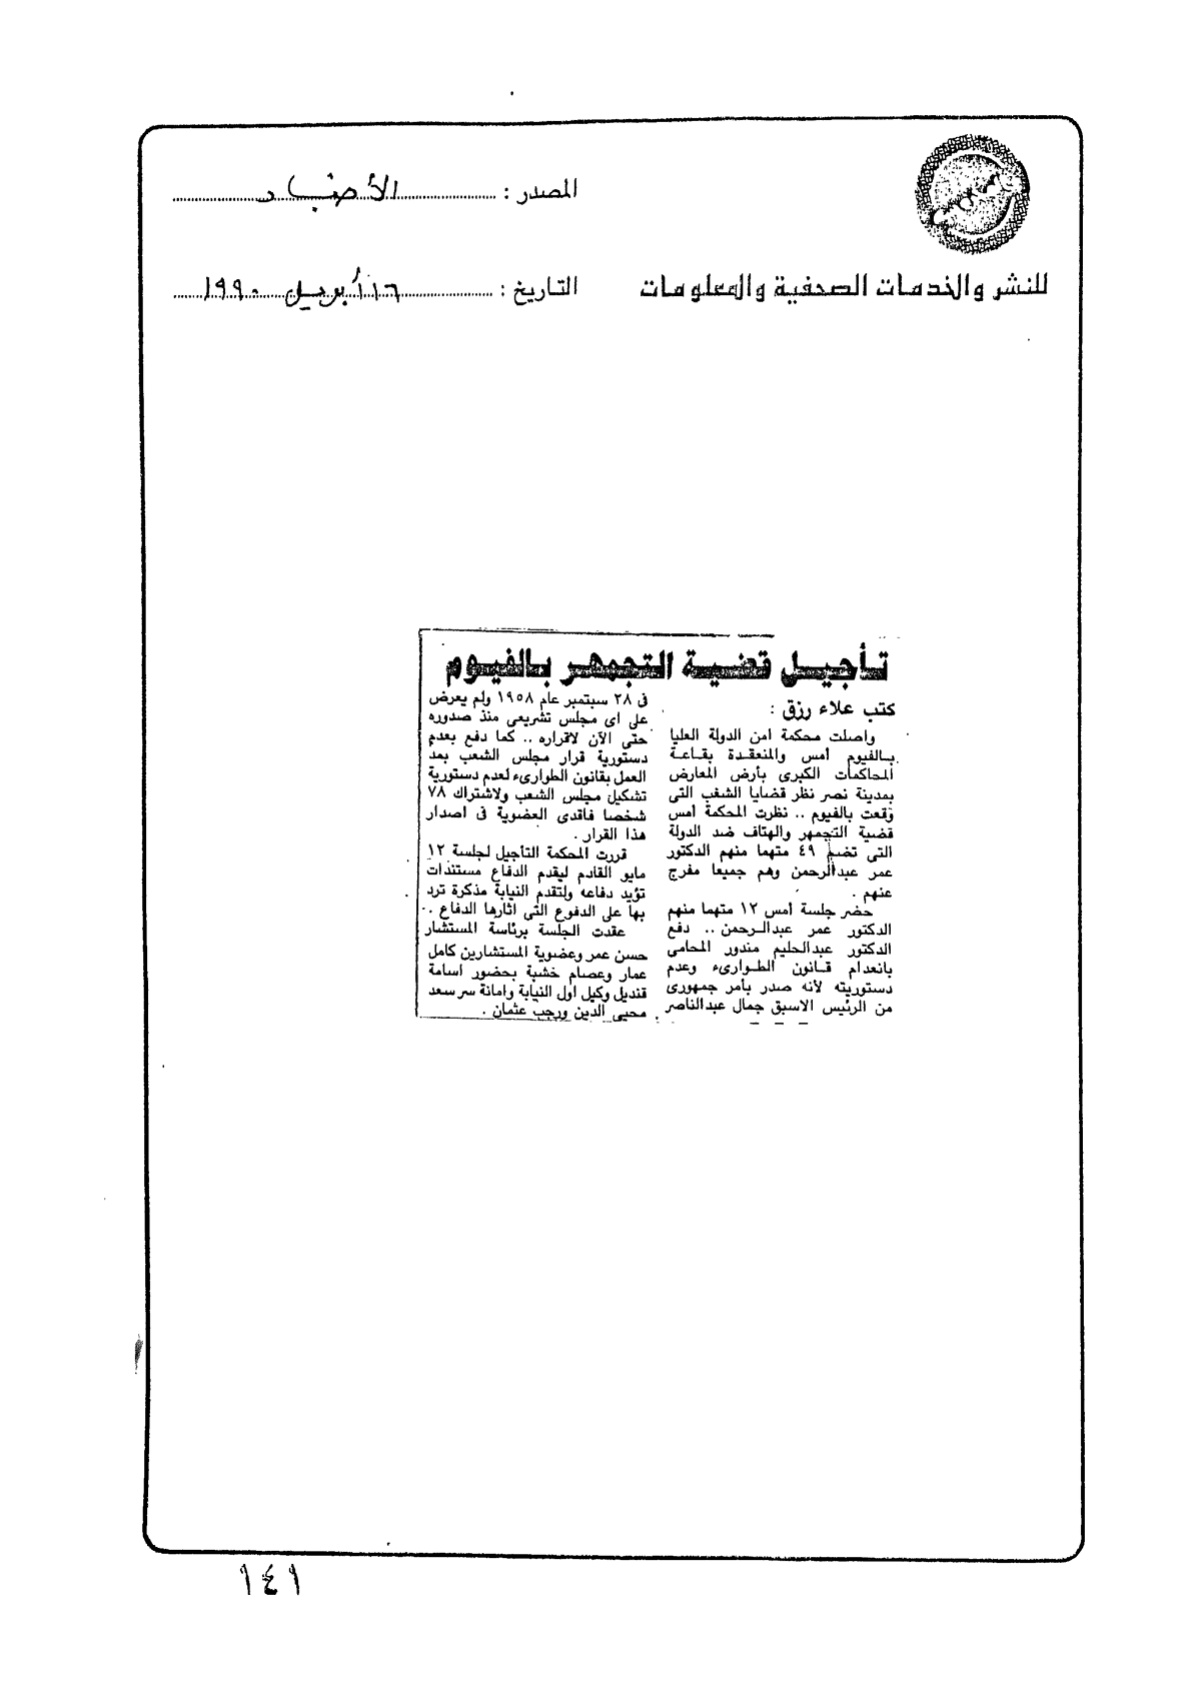 المصدر : الأخبار
للنشر والخدمات الصحفية والمعلومات
التاريخ : ١٦ أبريل ١٩٩٠
تأجيل قضية التجمهر بالفيوم
كتب علاء رزق :
واصلت محكمة امن الدولة العليا
بالفيوم أمس والمنعقدة بقاعة
المحاكمات الكبرى بأرض المعارض
بمدينة نصر نظر قضايا الشغب التى
وقعت بالفيوم .. نظرت المحكمة أمس
قضية التجمهر والهتاف ضد الدولة
التى تضم ٤٩ متهما منهم الدكتور
عمر عبدالرحمن وهم جميعا مفرج
عنهم .
حضر جلسة أمس ١٢ متهما منهم
الدكتور عمر عبدالرحمن .. دفع
الدكتور عبدالحليم مندور المحامى
بانعدام قانون الطوارىء وعدم
دستوريته لأنه صدر بأمر جمهورى
من الرئيس الاسبق جمال عبدالناصر
فى ٢٨ سبتمبر عام ١٩٥٨ ولم يعرض
على اى مجلس تشريعى منذ صدوره
حتى الآن لاقراره .. كما دفع بعدم
دستورية قرار مجلس الشعب بمد
العمل بقانون الطوارىء لعدم دستورية
تشكيل مجلس الشعب ولاشتراك ٧٨
شخصا فاقدى العضوية فى اصدار
هذا القرار .
قررت المحكمة التأجيل لجلسة ١٢
مايو القادم ليقدم الدفاع مستندات
تؤيد دفاعه ولتقدم النيابة مذكرة ترد
بها على الدفوع التى اثارها الدفاع ..
عقدت الجلسة برئاسة المستشار
حسن عمر وعضوية المستشارين كامل
عمار وعصام خشبة بحضور اسامة
قنديل وكيل اول النيابة وامانة سر سعد
محيى الدين ورجب عثمان .
١٤١